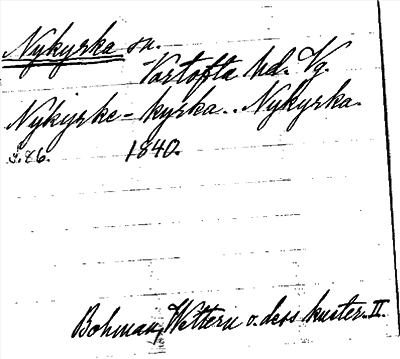 Nykyrka sn.
Vartofta hd. Vg.
Nykyrke-kyrka.. Nykyrka.
S. 86. 1840.
Bohman, Wettern o. dess kuster. II.